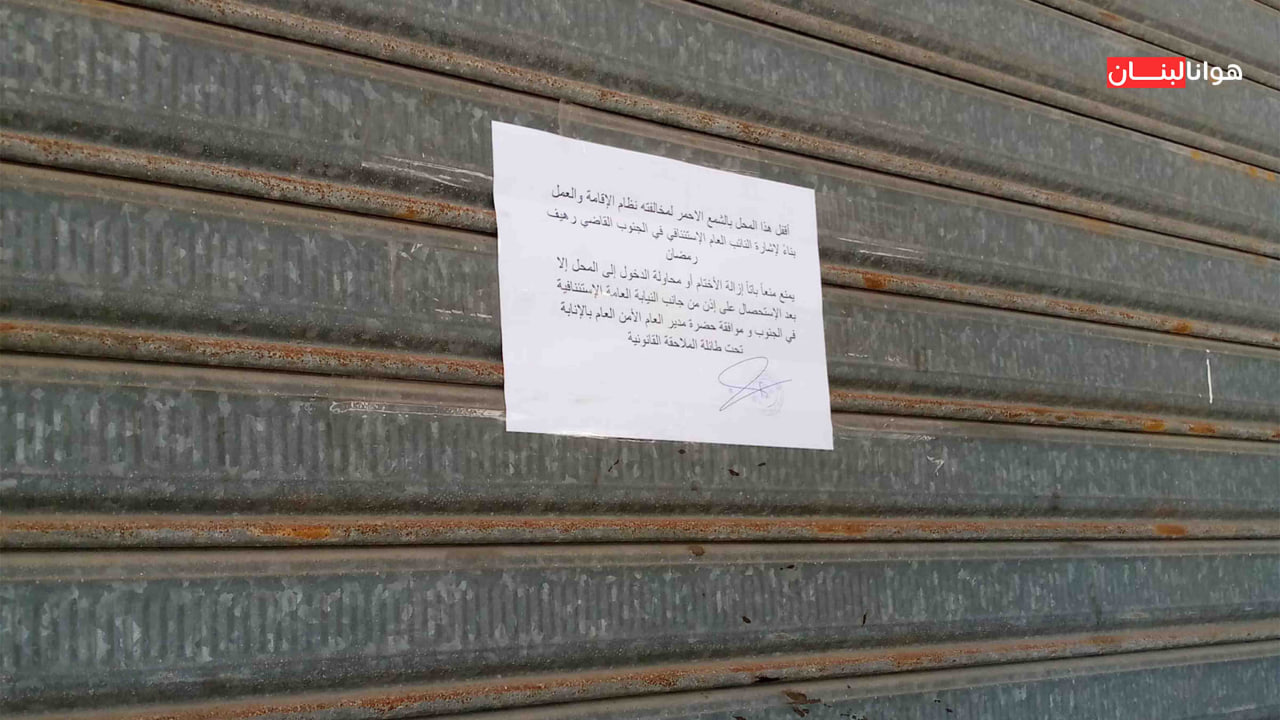 هوانالبنان
أقفل هذا المحل بالشمع الاحمر لمخالفته نظام الإقامة والعمل
بناءً لإشارة النائب العام الإستئنافي في الجنوب القاضي رهيف
رمضان
يمنع منعاً باتاً إزالة الأختام أو محاولة الدخول إلى المحل إلا
بعد الإستحصال على إذن من جانب النيابة العامة الإستئنافية
في الجنوب و موافقة حضرة مدير العام الأمن العام بالإنابة
تحت طائلة الملاحقة القانونية